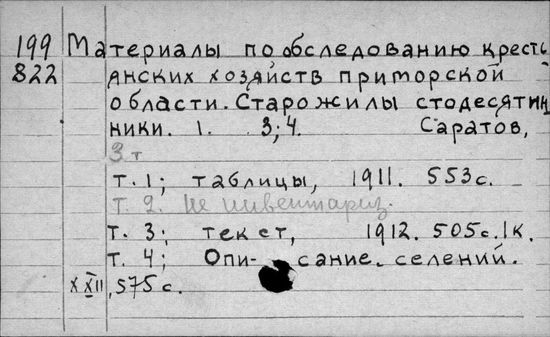 199 Материалы по обследованию кресть
822 янских хозяйств приморской
области. Старожилы стодесятин
ники. 1. 3; 4. Саратов,
3 т
т. 1; таблицы, 1911. 553 с.
т. 2. Не инвентариз.
т. 3; текст, 1912. 505 с. 1 к.
т. 4; Опи- сание. селений.
XXII, 575 с.